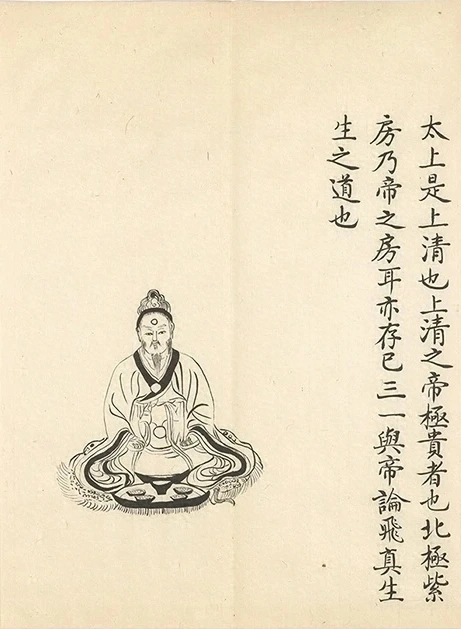 太上是上清也上清之帝極貴者也北極紫
房乃帝之房耳亦存已三一與帝論飛真生
生之道也